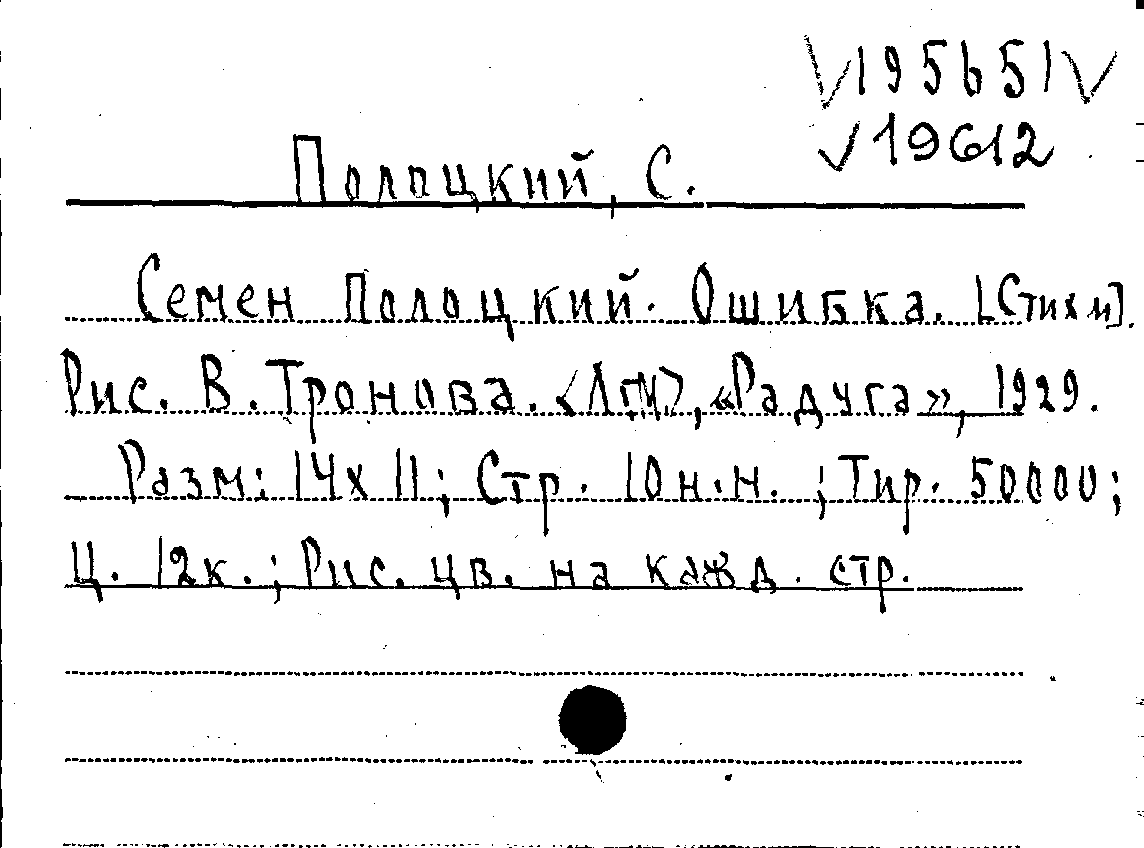 V195651V
V19612
Полоцкий, С.
Семен Полоцкий. Ошибка. [Стихи].
Рис. В. Тронова. <Л.М>, «Радуга», 1929.
Разм: 14х11; Стр. 10 н.н.; Тир. 50000;
Ц. 12к.; Рис. цв. на кажд. стр.